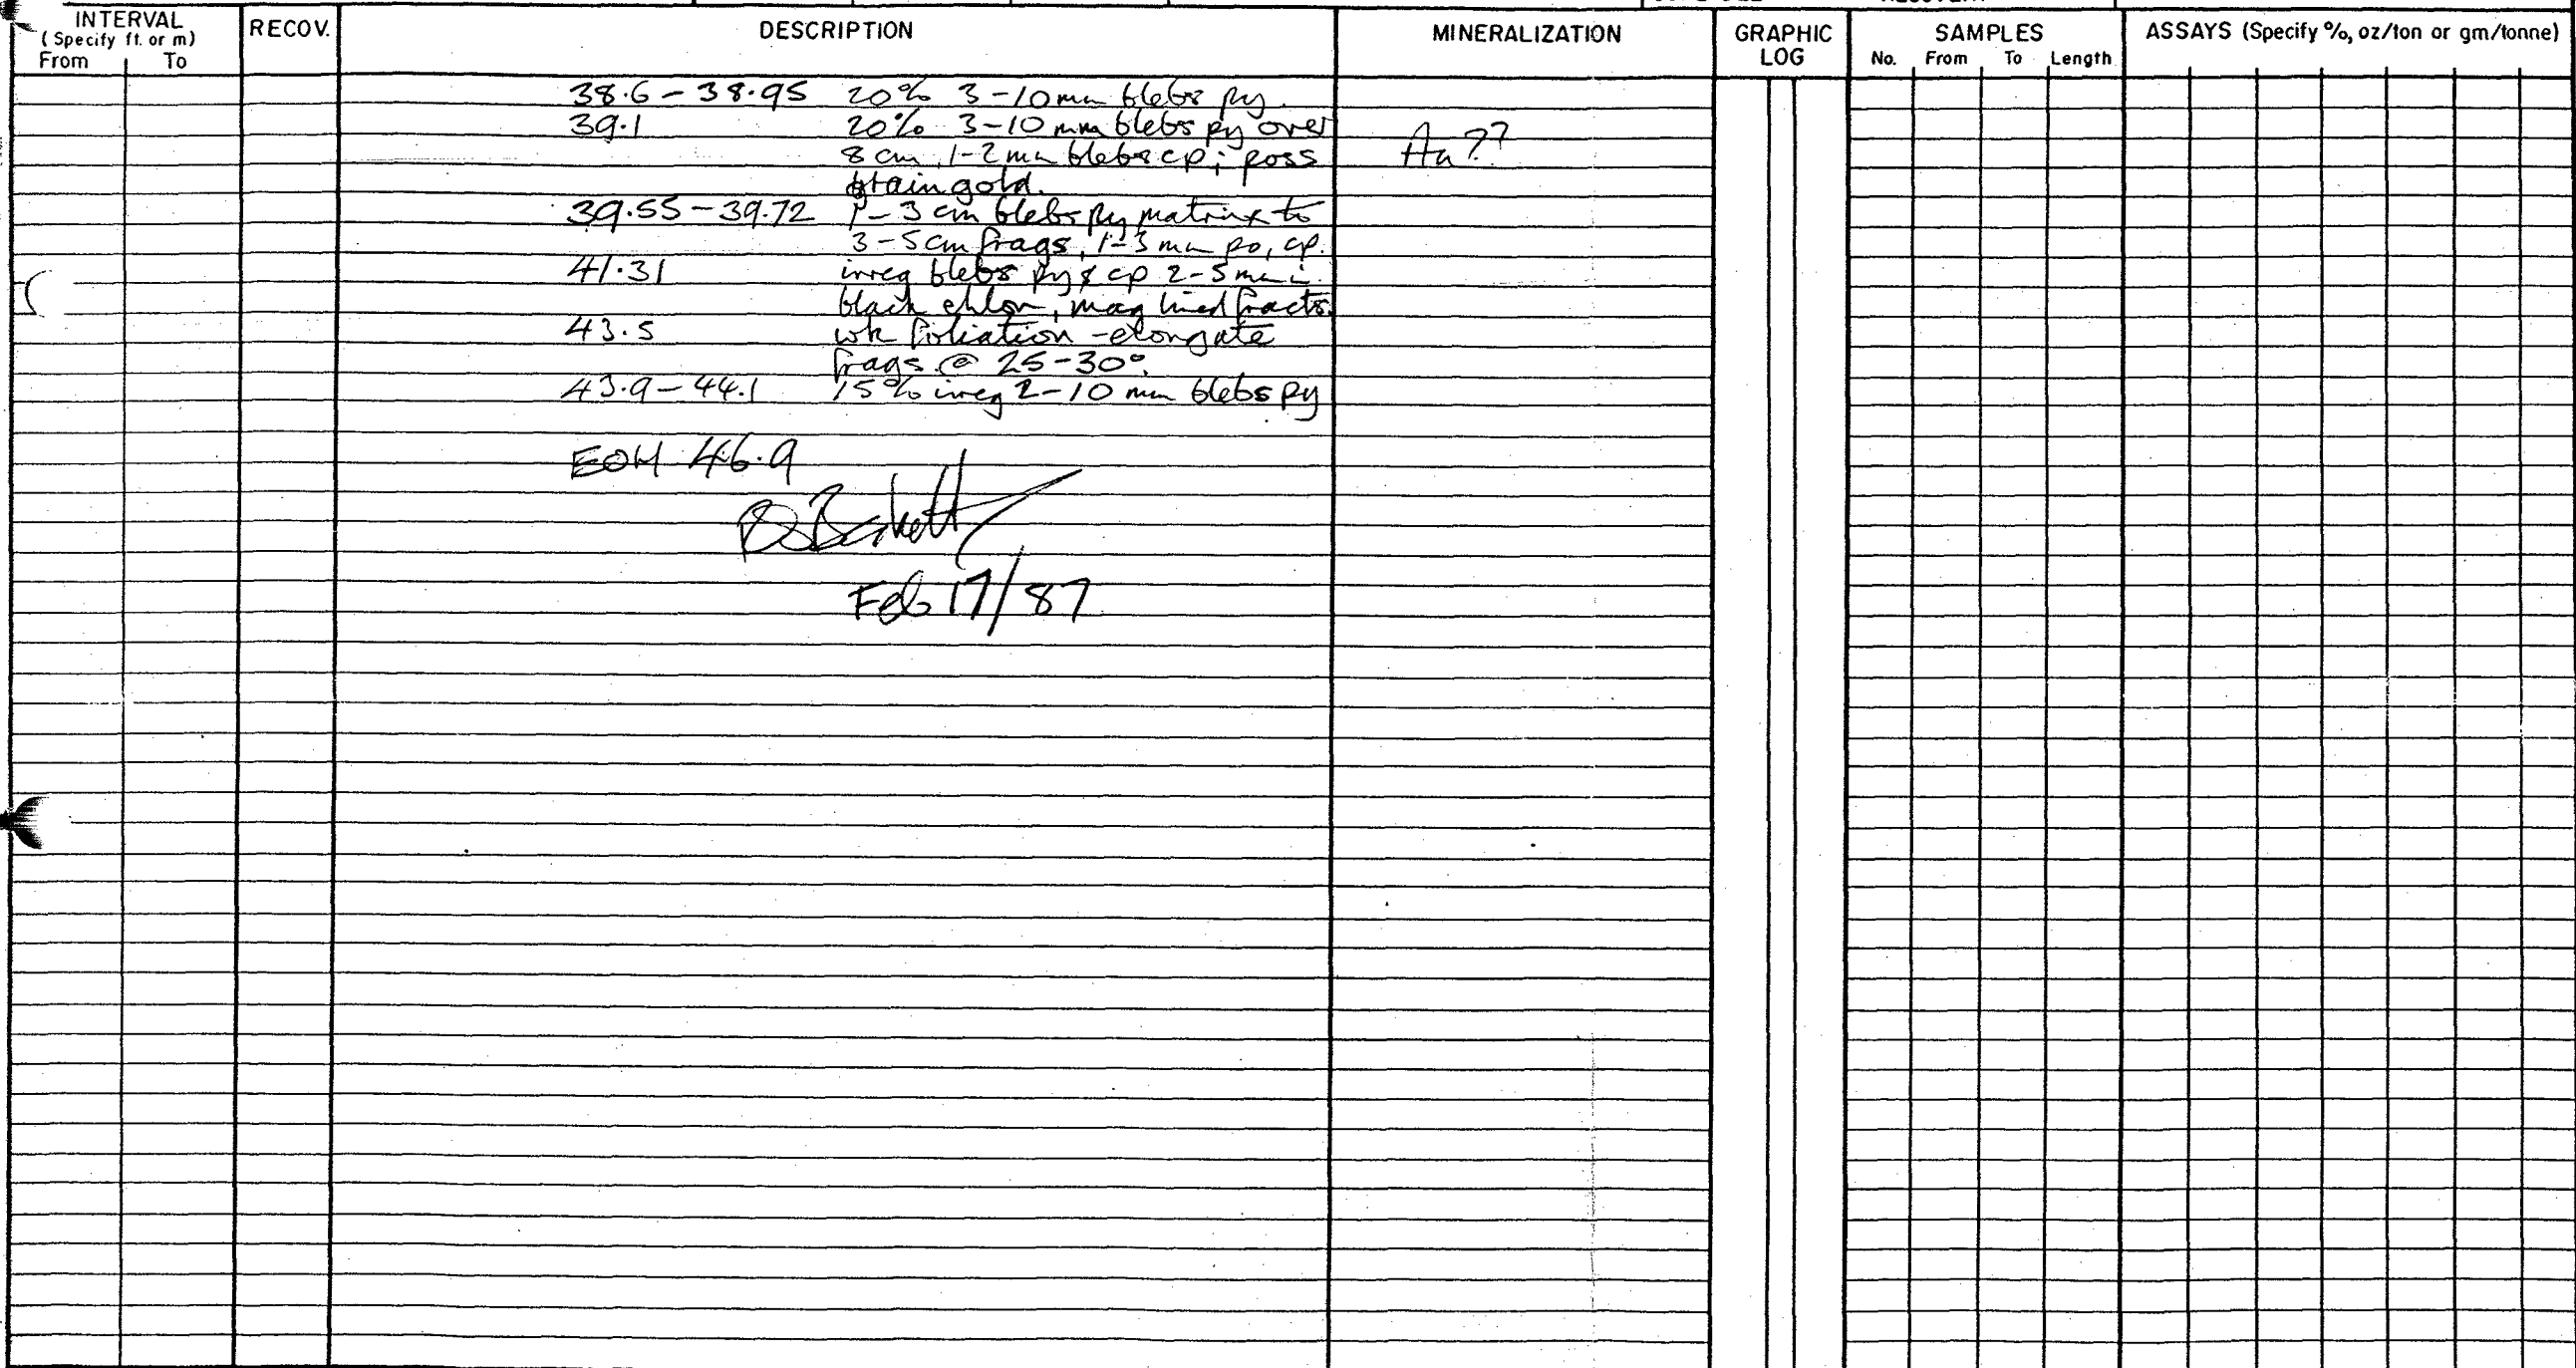 INTERVAL RECOV. DESCRIPTION MINERALIZATION GRAPHIC LOG SAMPLES ASSAYS (Specify %, oz/ton or gm/tonne)
(Specify ft. or m)
From To No. From To Length
38.6 - 38.95 20% 3-10 mm blebs py.
39.1 20% 3-10 mm blebs py over
8 cm, 1-2 mm blebs cp; poss Au??
grain gold.
39.55 - 39.72 1-3 cm blebs py matrix to
3-5 cm frags, 1-3 mm po, cp.
41.31 irreg blebs py & cp 2-5 mm i
black chlor, mag lined fracts.
43.5 wk foliation - elongate
frags @ 25-30°.
43.9 - 44.1 15% irreg 2-10 mm blebs py
EOH 46.9
Feb 17/87